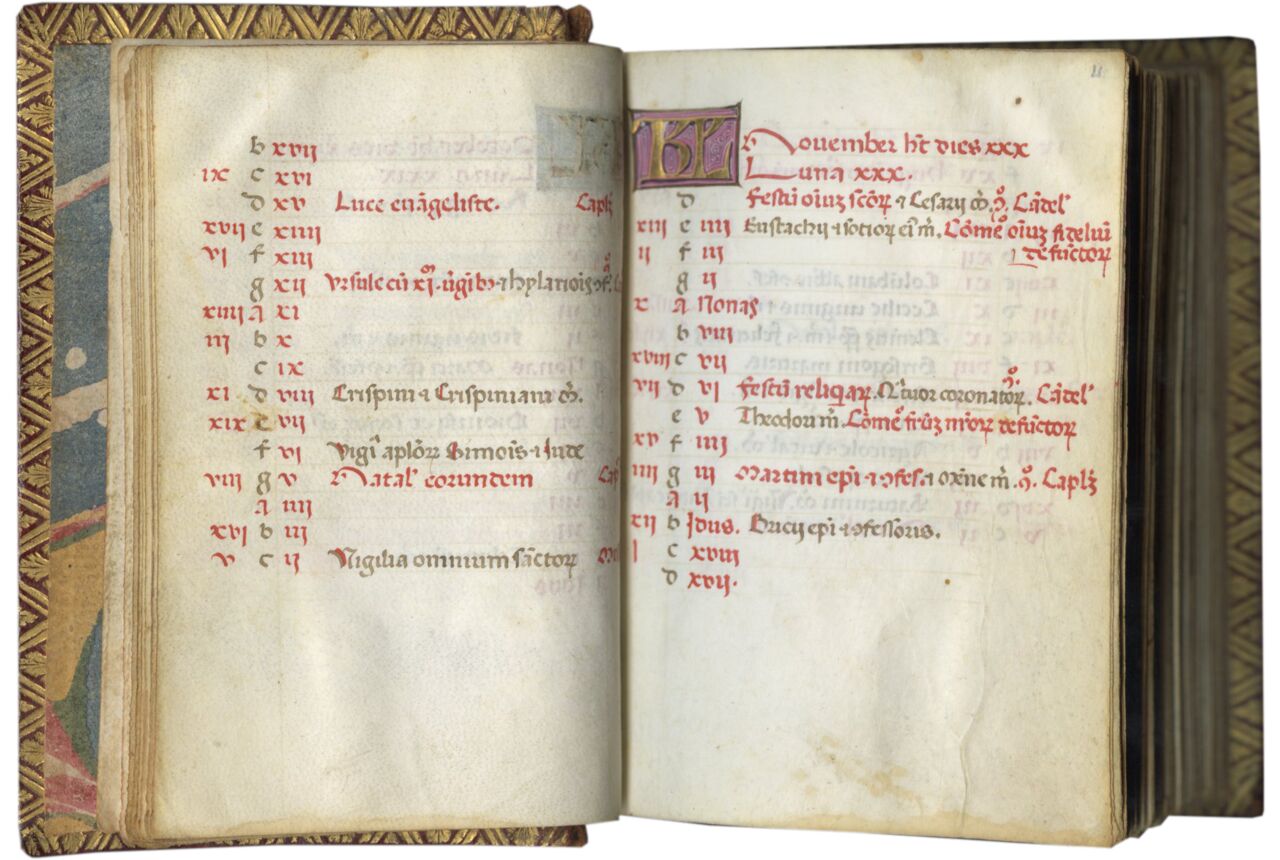 b xvij
ix c xvj
d xv Luce euãgeliste. Caplꝫ
xvij e xiiij
vj f xiij
g xij Vrsule cũ xj. ũgibꝫ ⁊ hylariõis
xiiij a xj
iij b x
c ix
xj d viij Crispini ⁊ Crispiniani m̃.
xix e vij
f vj Vigĩ aplõꝝ Simoĩs ⁊ Iude
viij g v Natal' eorundem
a iiij
xvj b iij
v c ij Vigilia omnium sãctoꝝ
11
KL Nouember hꝫ dies xxx
Luna xxx.
d Festũ oĩuꝫ scõꝝ ⁊ Cesarij m̃. Cãdel'
xiij e iiij Eustachij ⁊ sotioꝝ eĩ m̃. Cõme oĩuꝫ fideliũ
defũctoꝝ
ij f iij
g ij
x a Nonas
b viij
xviij c vij
vij d vj Festũ reliq̃aꝝ. Qtuor coronatoꝝ. Cãdel'
e v Theodori m̃. Cõme frũꝫ ñroꝝ defũctoꝝ
xv f iiij
iiij g iij Martini epĩ ⁊ ꝯfes. ⁊ mẽne m̃. Caplꝫ
a ij
xij b Idus. Bricij epĩ ⁊ ꝯfessoris.
j c xviij
d xvij.